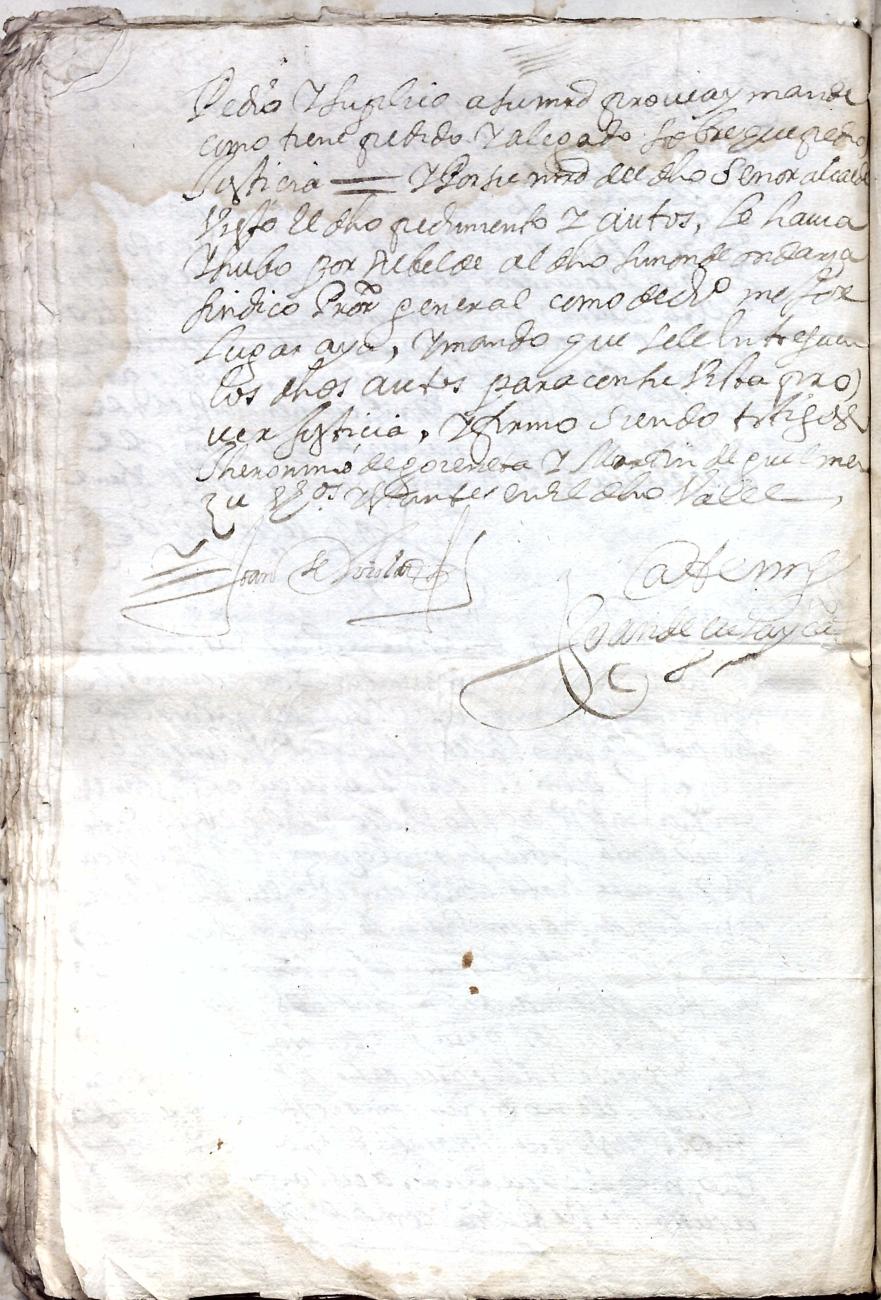 Pedio Y Suplico a su mrd provea y mande
como tiene pedido Y alegado sobre que pedio
Justicia = Y Por su mrd del dho Señor alcalde
Visto El dho pedimiento Y autos, Le havia
Y hubo por Rebelde al dho Simon de ondarza
Sindico Pror general como de dro mejor
Lugar aya, Y mando que sele Entreguen
los dhos autos para con su Vista pro
ver Justicia, Y firmo Siendo testigos
Jheronimo de goreneta Y Martin de guilme
zu Vzos Y estantes en El dho Valle
Joan de
Ante my
Joan de